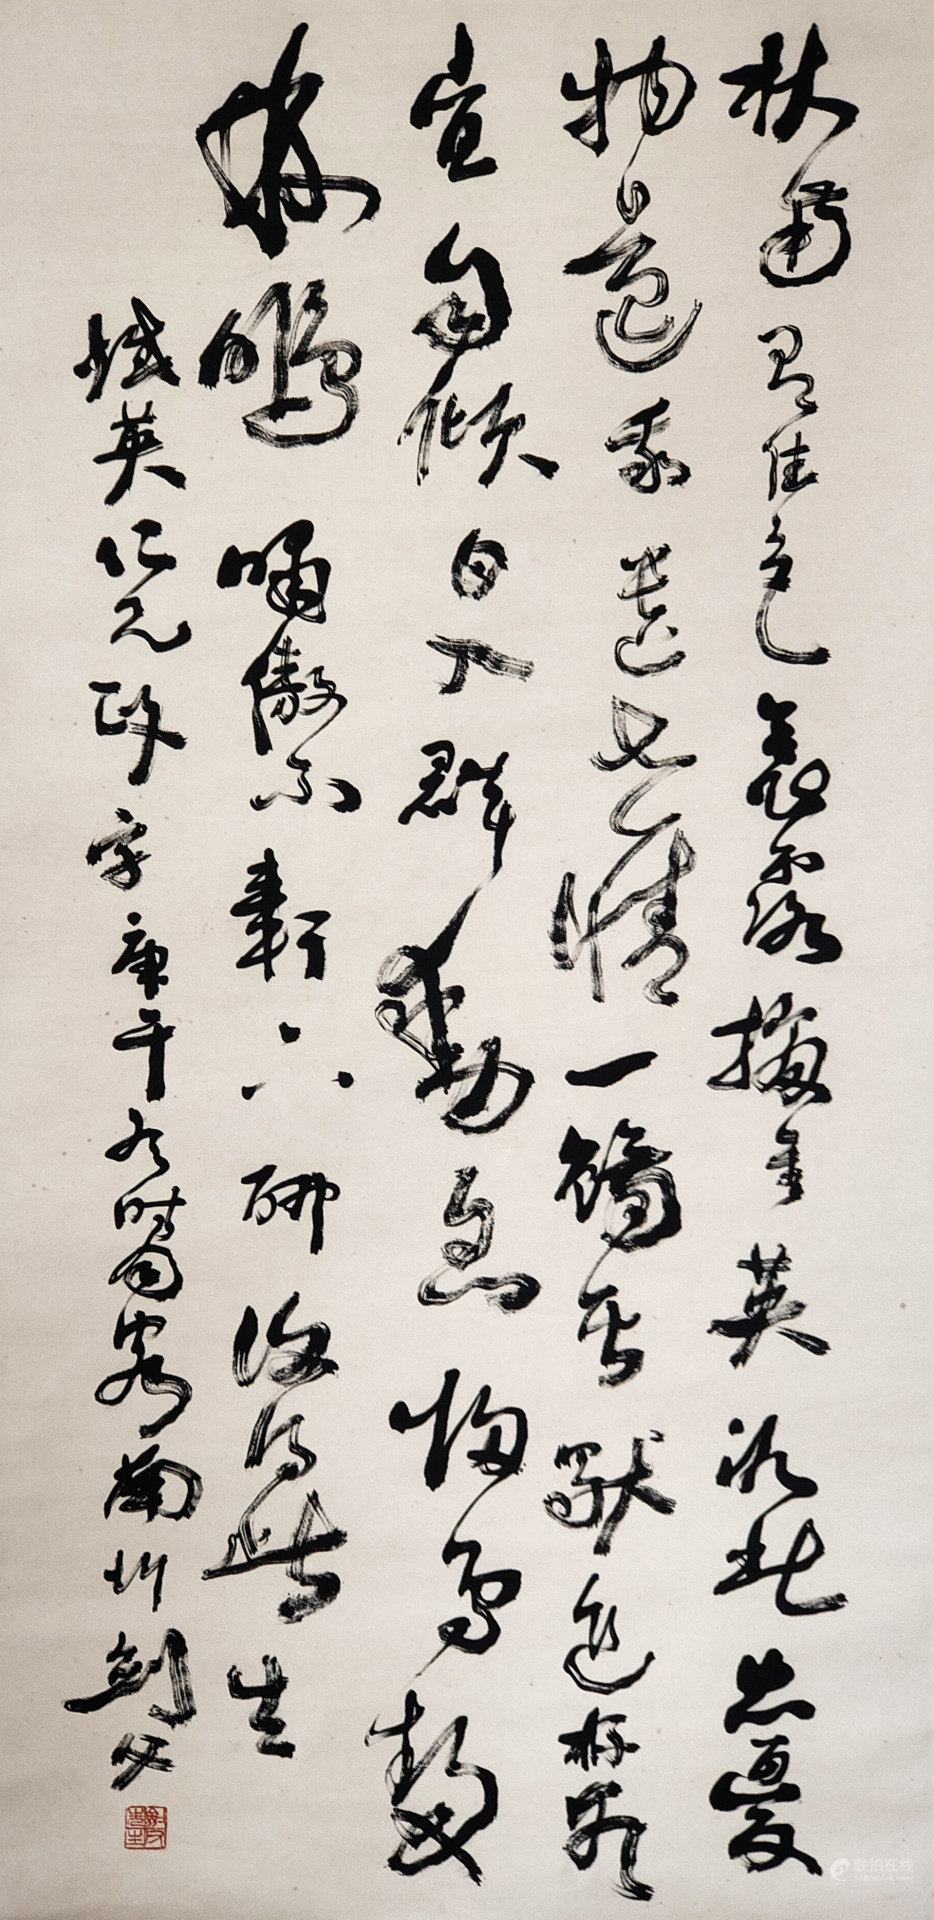 秋菊有佳色裛露掇其英泛此忘憂
物遠我遺世情一觴雖獨進杯盡
壺自傾日入群動息歸鳥趨
林鳴嘯傲東軒下聊復得此生
鐵英仁兄政字庚午冬時同客南圻劍父
联拍在线